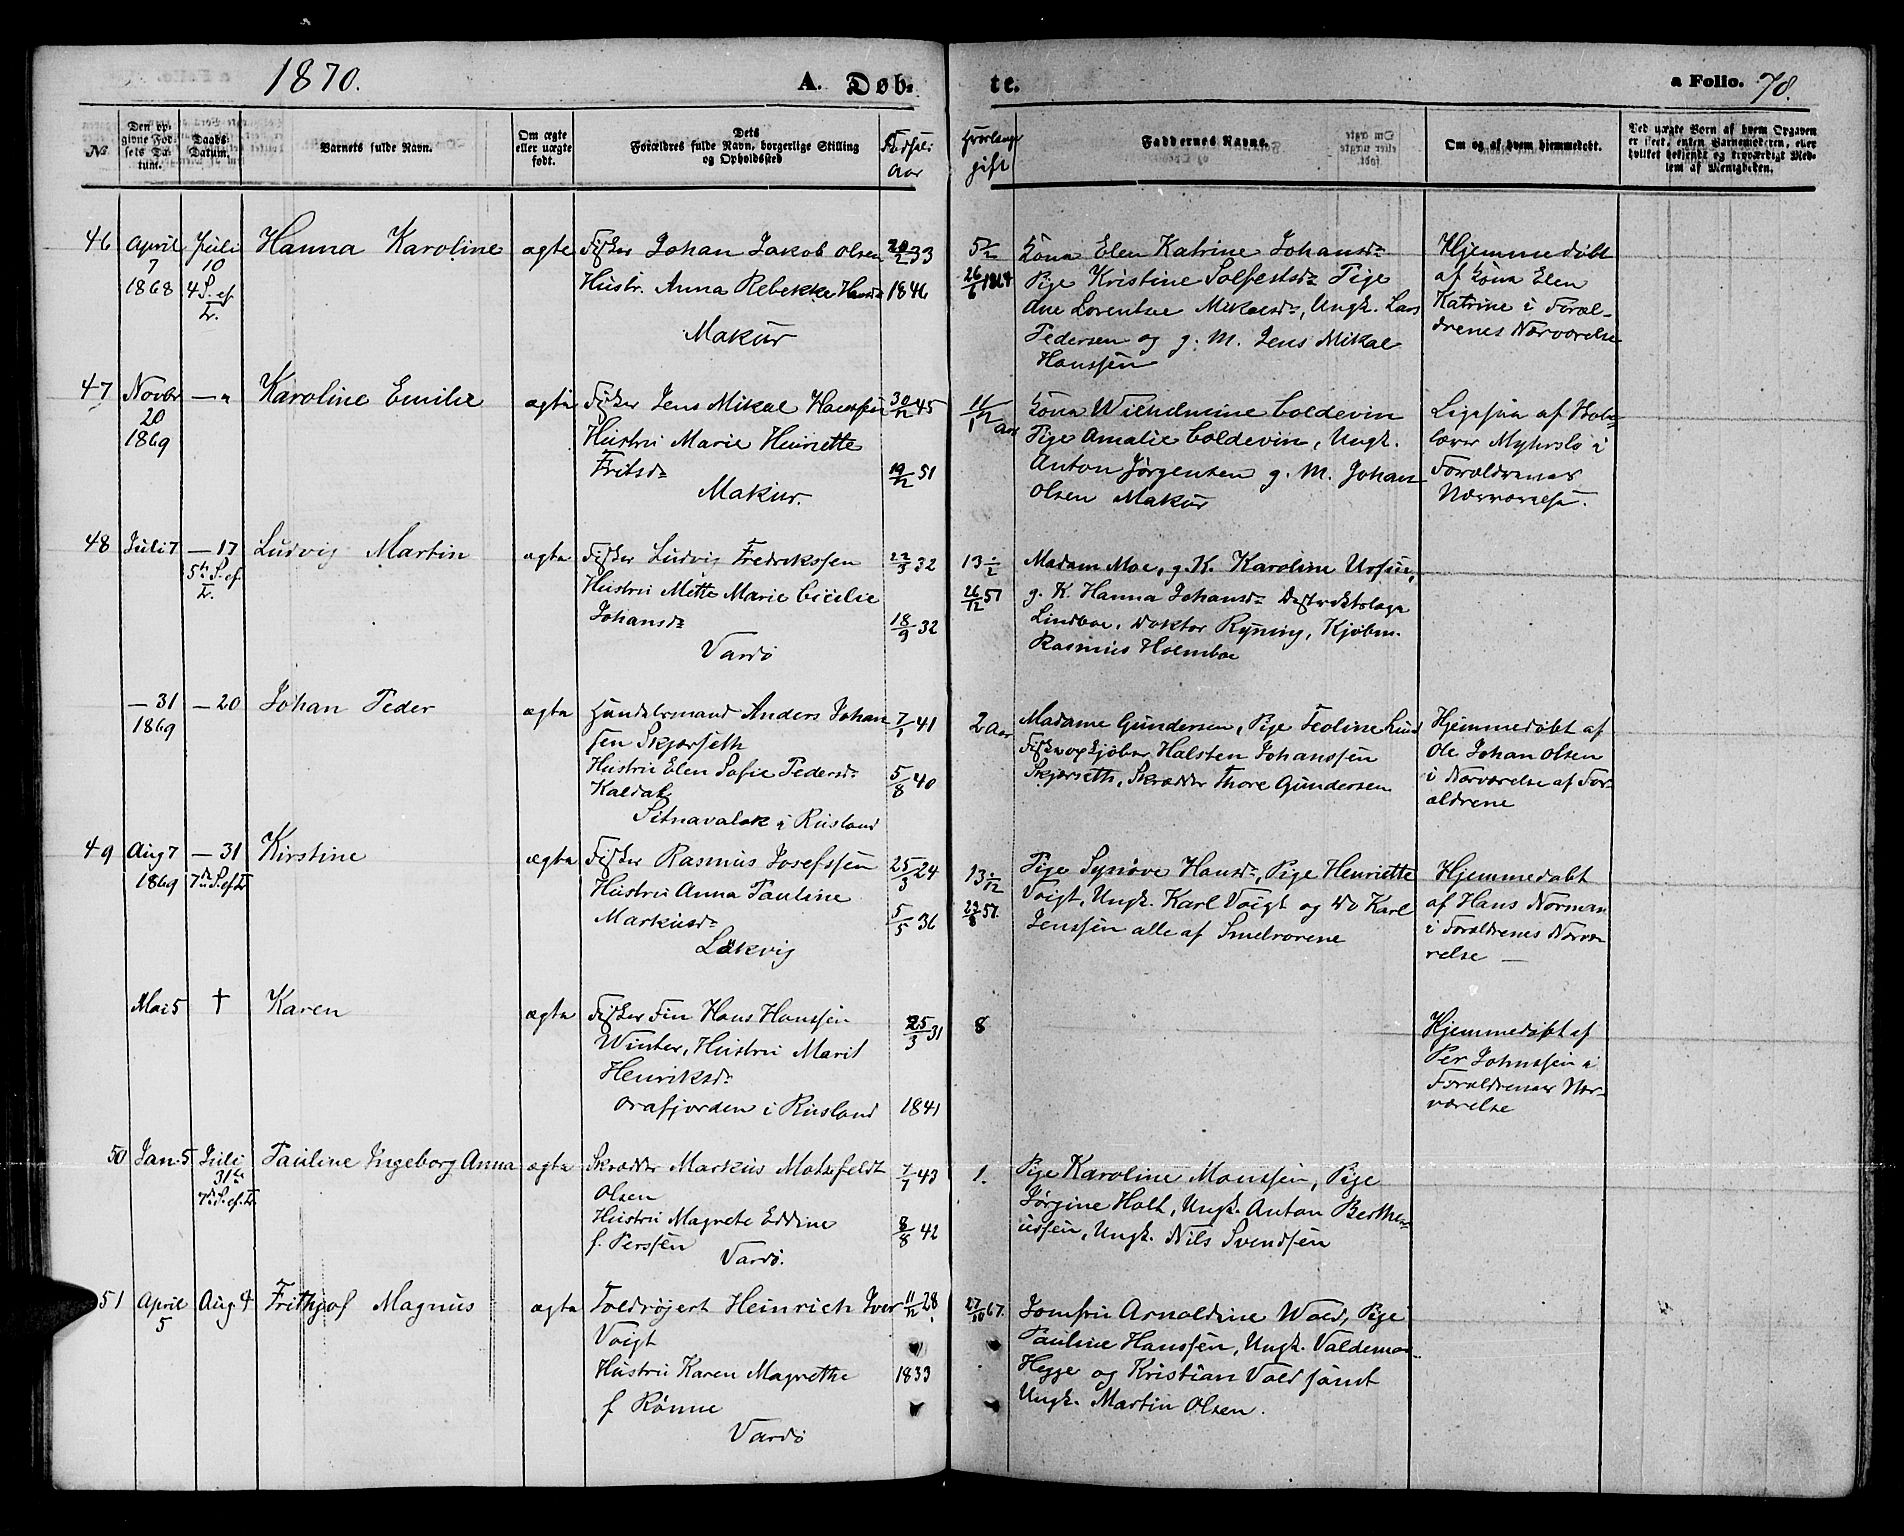 1870.
A. Døb-
te.
a Folio. 78.
№
Den op-
givne Fød-
sels Da-
tum.
Daabs-
Datum.
Barnets fulde Navn.
Om ægte
eller uægte
født.
Dets
Forældres fulde Navn, borgerlige Stilling
og Opholdssted
Fødsels
Aar
Hvorlænge
gift
Faddernes Navne.
Om og af hvem hjemmedøbt.
Ved uægte Børn af hvem Opgaven
er skeet, enten Barnemoderen, eller
hvilket bekjendt og troværdigt Med-
lem af Menigheden.
46 April Juli Hanna Karoline ægte Fisker Johan Jakob Olsen 20/2 33
7 10
1868 4 S. ef. Hustr. Anna Rebekke Hansd: 1846
Tr.
Makur
5 1/2 Kona Elen Katrine Johansd:
26/6 1864 Pige Kristine Solfestsd: Pige
Ane Lorentse Mikaelsd:, Ungk. Lars
Pedersen og g. M. Jens Mikal
Hanssen
Hjemmedøbt
af Kona Elen
Katrine i Foræl-
drenes Nærværelse
47 Novbr — " Karoline Emilie ægte Fisker Jens Mikal Hanssen 30/12 45
20 Hustru Marie Henriette
1869 Fritsd: 19/12 51
Makur.
1 11/12 Aar Kona Wilhelmine Coldevin
Pige Amalie Coldevin, Ungk.
Anton Jørgensen g. M. Johan
Olsen Makur
Ligesaa af
i
Forældrenes
Nærværelse.
48 Juli 7 — 17 Ludvig Martin ægte Fisker Ludvig Fredrikssen 22/3 32
5te S. ef. Hustru Mette Marie Cicilie
Tr. Johansd: 18/9 32
Vardø
13 1/2 Madam Moe, g. K. Karoline
26/12 57 g. K. Hanna Johansd: Distriktslæge
Lindboe, Doktor Ryning, Kjøbm.
Rasmus Holmboe
— 31 — 20 Johan Peder ægte Handelsmand Anders Johan 7/1 41
1869 sen Skjærseth
Hustru Elen Sofie Pedersd: 5/8 40
Kaldak
Sitnavalok i Rusland
2 Aar Madame Gundersen, Pige Teoline Lund
Fiskeropkjøber Halsten Johanssen
Skjærseth, Skrædder Thore Gundersen
Hjemmedøbt af
Ole Johan Olsen
i Nærværelse af For-
ældrene
49 Aug 7 — 31 Kirstine ægte Fisker Rasmus Josefssen 25/3 24
1869 7de S. ef. Tr. Hustru Anna Pauline
Markusd: 5/5 36
Lakvig
13 Pige Synøve Hansd:, Pige Henriette
57. Voigt, Ungk. Karl Voigt og Do Karl
Jenssen alle af Smelrorene
Hjemmedøbt
af Hans Norman
i Forældrenes Nærvæ-
relse —
Mai 5 † Karen ægte Fisker Fin Hans Hanssen 25/3 31
Winter, Hustru Marit
Henriksd:
Orafjorden i Rusland 1841
8
Hjemmedøbt af
Per Johnssen i
Forældrenes Nær-
værelse
50 Jan. 5 Juli Pauline Ingeborg Anna ægte Skrædder Markus Motzfeldt 7/7 43
31te Olsen
7de S. ef. Tr. Hustru Magrete Eddine 8/8 42
f. Perssen
Vardø.
1. Pige Karoline Monssen, Pige
Jørgine Holt, Ungk. Anton Berthe-
ussen, Ungk. Nils Svendsen
51 April Aug 4 Frithjof Magnus ægte Toldrojert Heinrich Iver 11/12 28
5 Voigt
Hustru Karen Magrethe 1833
f Rønne
Vardø
27/10 67. Jomfru Arnoldine Wold, Pige
Pauline Hanssen, Ungk. Valdemar
Hegge og Kristian Vold samt
Ungk. Martin Olsen.